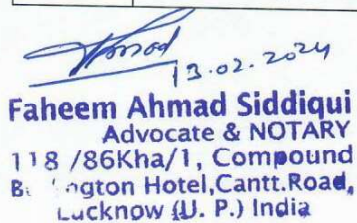 13.02.2024
Faheem Ahmad Siddiqui
Advocate & NOTARY
118/86Kha/1, Compound
Hotel,Cantt.Road,
Lucknow (U. P.) India